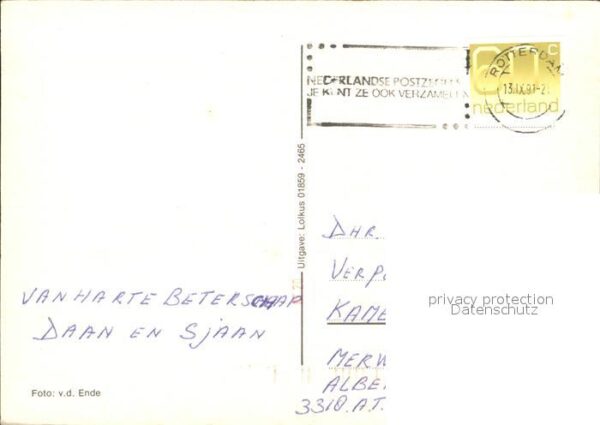 60 C
nederland
ROTTERDAM
13.IX.91-21
NEDERLANDSE POSTZEGELS
JE KUNT ZE OOK VERZAMELEN
Uitgave: Lolkus 01859 - 2465
VAN HARTE BETERSCHAP
DAAN EN SJAAN
DHR.
VERP
KAME
MERW
ALBE
3310.A.T.
privacy protection
Datenschutz
Foto: v.d. Ende